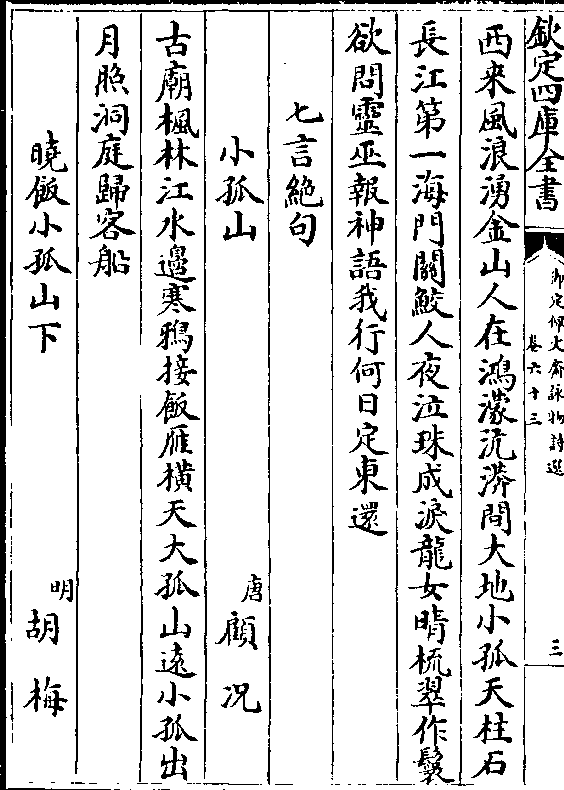 欽定四庫全書
御定佩文齋詠物詩選
卷六十三
三
西來風浪湧金山人在鴻濛沆漭間大地小孤天柱石
長江第一海門關鮫人夜泣珠成淚龍女晴梳翠作鬟
欲問靈巫報神語我行何日定東還
七言絶句
小孤山
唐顧况
古廟楓林江水邊寒鴉接飯雁橫天大孤山遠小孤出
月照洞庭歸客船
曉飯小孤山下
明胡梅